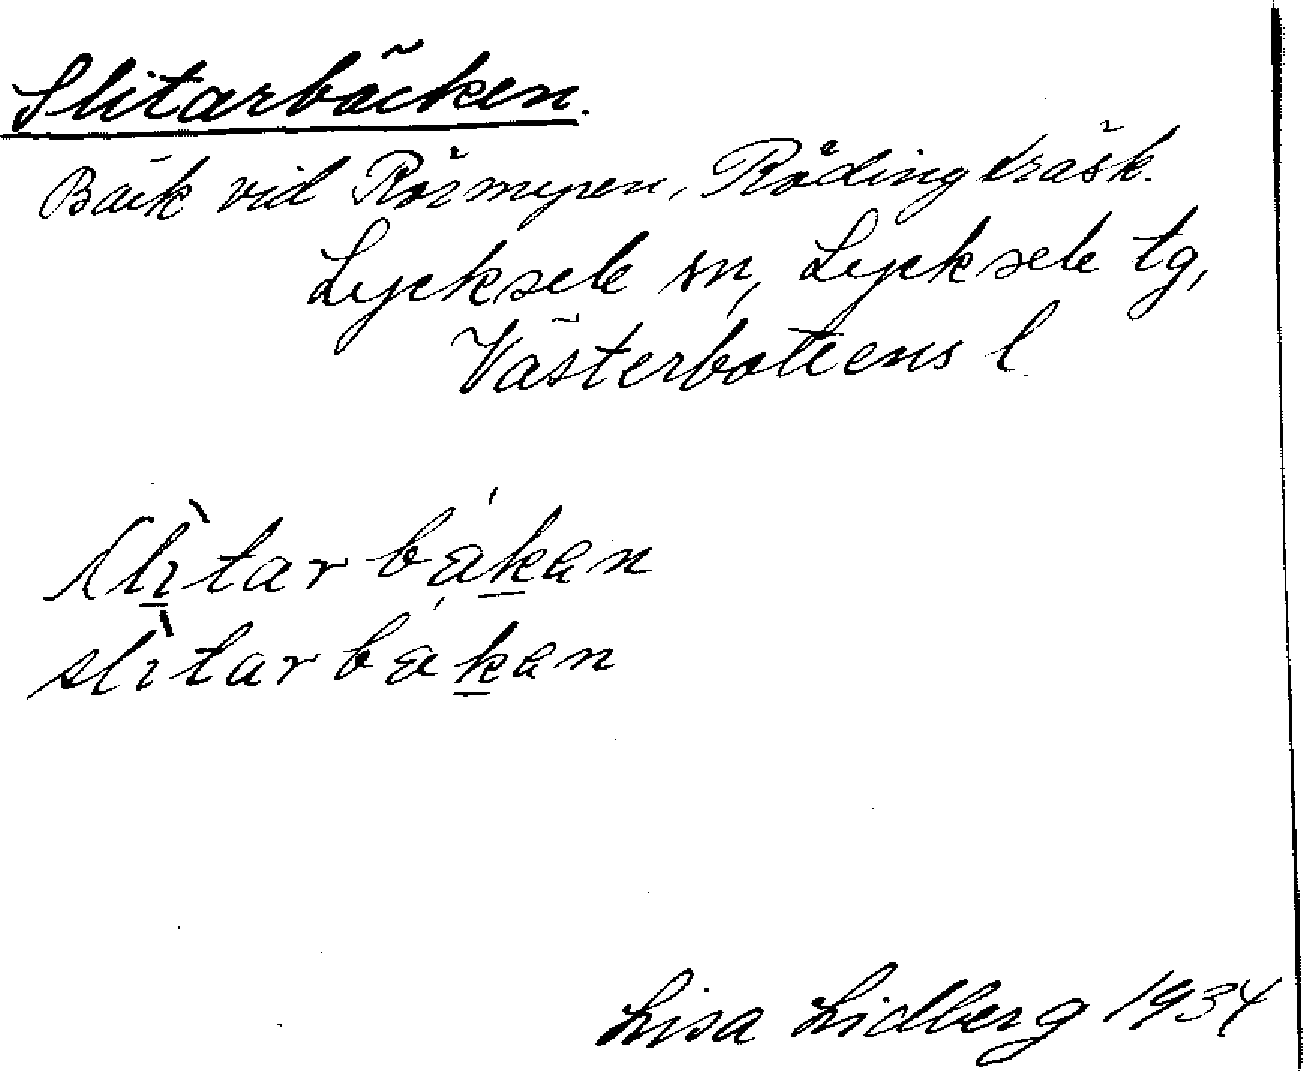 Slitarbäcken.
Bäck vid Rörmyren, Rödingträsk.
Lycksele sn, Lycksele tg,
Västerbottens l
slìtar bákan
slìtar bákan
Lisa Lidberg 1934